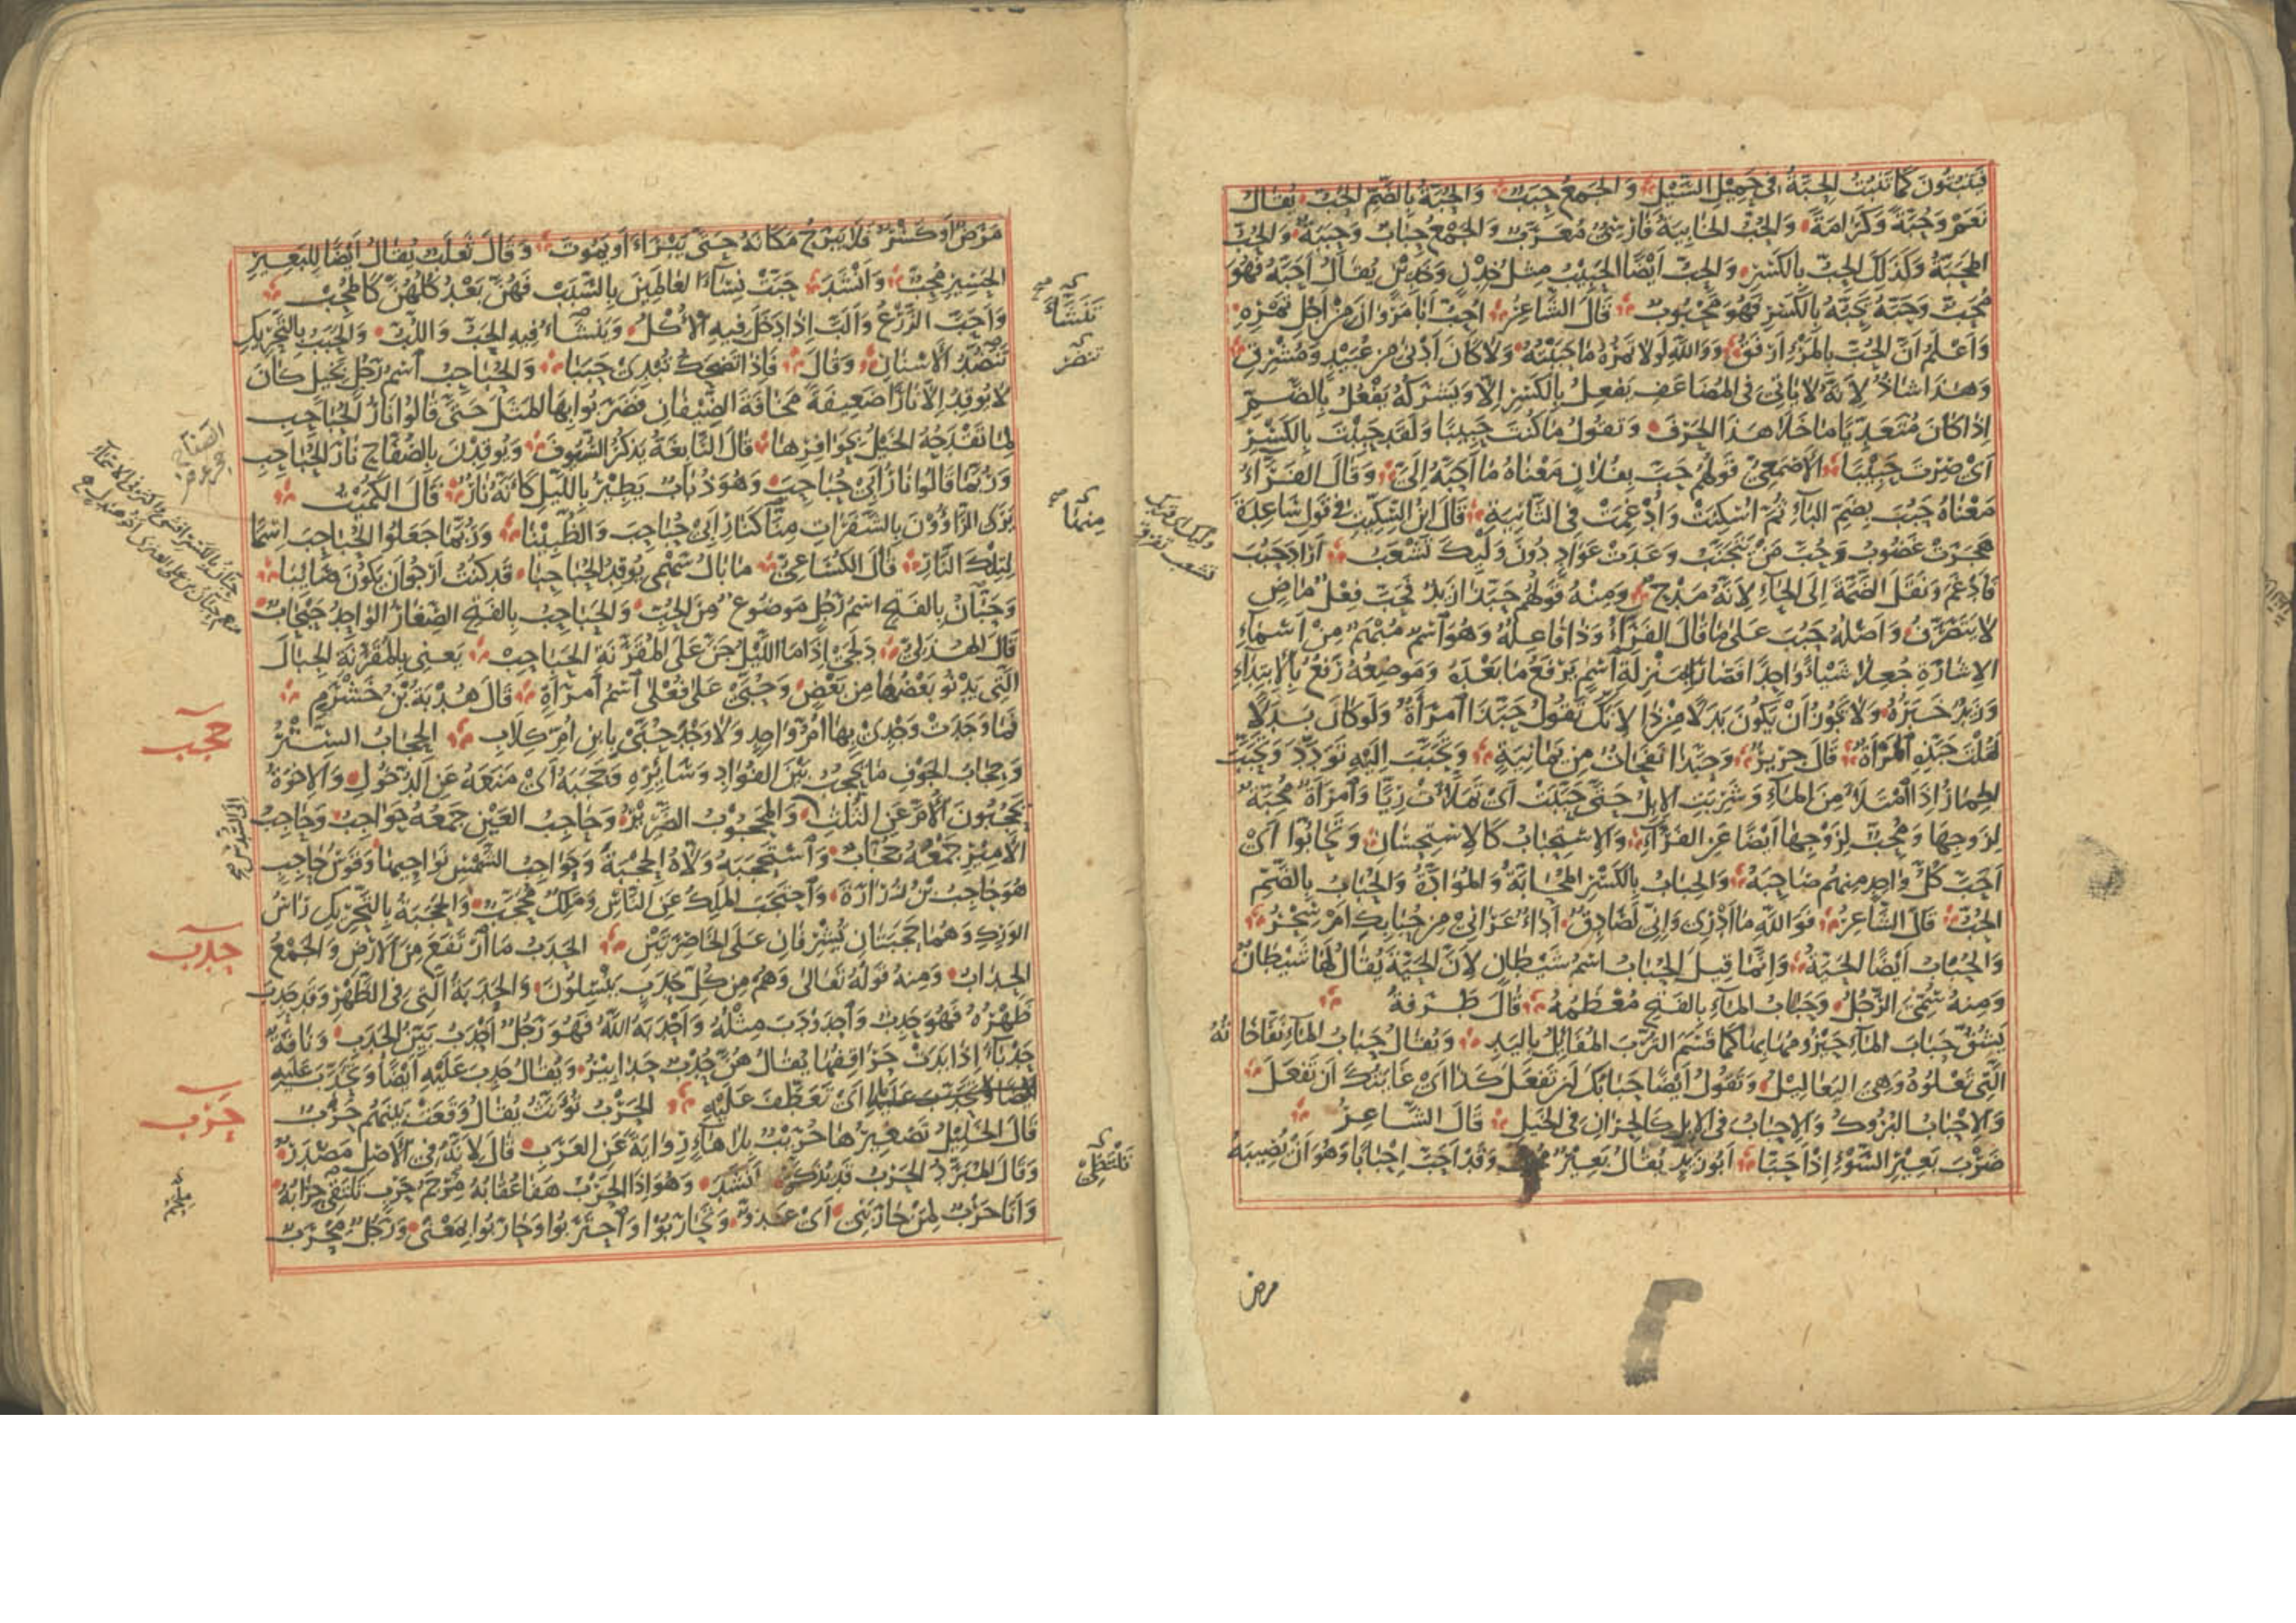 فينبتون كَمَا تَنْبُتُ الحِبَّةُ فى حَمِيْلِ السَّيْلِ وَالجَمعُ حِبَبٌ وَالحُبَّةُ بِالضَّمِّ الحُبّ يُقَالُ
نَعَمْ وَحُبَّةً وَكَرَامَةً وَالحُبُّ الخَابِيَةُ فَارِسِىٌّ مُعَرَّبٌ وَالجَمْعُ حِبَابٌ وَحِبَبَةٌ وَالحُبُّ
المَحَبَّةُ وَكَذَلِكَ الحِبُّ بِالكَسْرِ وَالحِبُّ اَيْضًا الحَبِيْبُ مِثْلُ خِدْنٍ وَخَدِيْنٍ يُقَالُ اَحَبَّهُ فَهُوَ
مُحَبٌّ وَحَبَّهُ يَحِبُّهُ بِالكَسْرِ فَهُوَ مَحْبُوبٌ قَالَ الشَّاعِرُ اُحِبُّ اَبَا مَرْوَانَ مِنْ اَجْلِ تَمْرِهِ
وَاَعْلَمُ اَنَّ الحُبَّ بِالمَرْءِ اَرْفَقُ وَوَاللّٰهِ لَولَا تَمْرُهُ مَا حَبَبْتُهُ وَلَا كَانَ اَدْنٰى مِنْ عُبَيْدٍ وَمُشْرِقِ
وَهٰذَا شَاذٌّ لِاَنَّهُ لَا يَاْتِىْ فى المُضَاعَفِ يَفْعِلُ بِالكَسْرِ اِلَّا وَيَشْرَكُهُ يَفْعُلُ بِالضَّمِّ
اِذَا كَانَ مُتَعَدِّيًا مَا خَلَا هٰذَا الحَرْفَ وَتَقُولُ مَا كُنْتَ حَبِيبًا وَلَقَدْ حَبِبْتَ بِالكَسْرِ
اَىْ صِرْتَ حَبِيْبًا الاَصْمَعِىُّ قَولُهُمْ حَبَّ بِفُلَانٍ مَعْنَاهُ مَا اَحَبَّهُ اِلَىَّ وَقَالَ الفَرَّاءُ
مَعْنَاهُ حَبُبَ بِضَمِّ البَاءِ ثُمَّ اُسْكِنَتْ وَاُدْغِمَتْ فى الثَّانِيَةِ قَالَ ابْنُ السِّكِّيْتِ فى قَولِ سَاعِدَةَ
هَجَرَتْ غَضُوبُ وَحُبَّ مَنْ يَتَجَنَّبُ وَعَدَتْ عَوَادٍ دُونَ وَلْيِكَ تَشْعَبُ اَرَادَ حَبُبَ
فَاَدْغَمَ وَنَقَلَ الضَّمَّةَ اِلَى الحَاءِ لِاَنَّهُ مَدْحٌ وَمِنْهُ قَولُهُمْ حَبَّذَا زَيْدٌ فَحَبَّ فِعْلٌ مَاضٍ
لَا يَتَصَرَّفُ وَاَصْلُهُ حَبُبَ عَلَى مَا قَالَ الفَرَّاءُ وَذَا فَاعِلُهُ وَهُوَ اسْمٌ مُبْهَمٌ مِنْ اَسْمَاءِ
الاِشَارَةِ جُعِلَا شَيْئًا وَاحِدًا فَصَارَا بِمَنْزِلَةِ اسْمٍ يَرْفَعُ مَا بَعْدَهُ وَمَوضِعُهُ رَفْعٌ بِالاِبْتِدَاءِ
وَزَيْدٌ خَبَرُهُ وَلَا يَجُوزُ اَنْ يَكُونَ بَدَلًا مِنْ ذَا لِاَنَّكَ تَقُولُ حَبَّذَا امْرَاَةٌ وَلَو كَانَ بَدَلًا
لَقُلْتَ حَبَّذِهِ المَرْاَةُ قَالَ جَرِيرٌ وَحَبَّذَا نَفَحَاتٌ مِنْ يَمَانِيَةٍ وَتَحَبَّبَ اِلَيْهِ تَوَدَّدَ وَتَحَبَّبَ
الحِمَارُ اِذَا امْتَلَاَ مِنَ المَاءِ وَشَرِبَتِ الاِبِلُ حَتَّى حَبَّبَتْ اَىْ تَمَلَّاَتْ رِيًّا وَامْرَاَةٌ مُحِبَّةٌ
لِزَوجِهَا وَمُحِبٌّ لِزَوْجِهَا اَيْضًا عَنِ الفَرَّاءِ وَالاِسْتِحْبَابُ كَالاِسْتِحْسَانِ وَتَحَابُّوا اَىْ
اَحَبَّ كُلُّ وَاحِدٍ مِنْهُمْ صَاحِبَهُ وَالحِبَابُ بِالكَسْرِ المُحَابَّةُ وَالمُوَادَّةُ وَالحُبَابُ بِالضَّمِّ
الحُبُّ قَالَ الشَّاعِرُ فَوَاللّٰهِ مَا اَدْرِى وَاِنِّى لَصَادِقٌ اَدَاءٌ عَرَانِىْ مِنْ حُبَابِكِ اَمْ سِحْرُ
وَالحُبَابُ اَيْضًا الحَيَّةُ وَاِنَّمَا قِيلَ الحُبَابُ اسْمُ شَيْطَانٍ لِاَنَّ الحَيَّةَ يُقَالُ لَهَا شَيْطَانٌ
وَمِنْهُ سُمِّىَ الرَّجُلُ وَحَبَابُ المَاءِ بِالفَتْحِ مُعْظَمُهُ قَالَ طَرَفَةُ
يَشُقُّ حَبَابَ المَاءِ حَيْزُومُهَا بِهَا كَمَا قَسَمَ التُّرْبَ المُفَائِلُ بِاليَدِ وَيُقَالُ حَبَابُ المَاءِ نُفَّاخَاتُهُ
الَّتِى تَعْلُوهُ وَهِىَ اليَعَالِيْلُ وَتَقُولُ اَيْضًا حَبَابُكَ اَنْ تَفْعَلَ كَذَا اَىْ غَايَتُكَ اَنْ تَفْعَلَ
وَالاِحْبَابُ البُرُوكُ وَالاِحْبَابُ فى الاِبِلِ كَالحِرَانِ فى الخَيلِ قَالَ الشَّاعِرُ
ضَرْبَ بَعِيْرِ السَّوْءِ اِذْ اَحَبَّا اَبُو زَيدٍ يُقَالُ بَعِيْرٌ وَقَدْ اَحَبَّ اِحْبَابًا وَهُوَ اَنْ يُصِيبَهُ
مرض
مَرَضٌ اَو كَسْرٌ فَلَا يَبْرَحُ مَكَانَهُ حَتَّى يَبْرَاَ اَو يَمُوتَ وَقَالَ ثَعْلَبٌ يُقَالُ اَيْضًا لِلبَعِيرِ
الحَسِيرِ مُحِبٌّ وَاَنْشَدَ جَبَّتْ نِسَاءَ العَالَمِيْنَ بِالسَّبَبْ فَهُنَّ بَعْدُ كُلُّهُنَّ كَالمُحِبْ
وَاَحَبَّ الزَّرْعُ وَاَلَبَّ اِذَا دَخَلَ فِيهِ الاُكْلُ وَتَنَشَّاَ فِيهِ الحَبُّ وَاللُّبُّ وَالحَبَبُ بِالتَّحْرِيكِ
تَنَضُّدُ الاَسْنَانِ وَقَالَ فَاِذَا تَضْحَكُ تُبْدِىْ حَبَبًا وَالحُبَاحِبُ اسْمُ رَجُلٍ بَخِيْلٍ كَانَ
لَا يُوقِدُ اِلَّا نَارًا ضَعِيفَةً مَخَافَةَ الضِّيْفَانِ فَضَرَبُوا بِهَا المَثَلَ حَتَّى قَالُوا نَارُ الحُبَاحِبِ
لِمَا تَقْدَحُهُ الخَيْلُ بِحَوَافِرِهَا قَالَ النَّابِغَةُ يَذْكُرُ السُّيُوفَ وَيُوقِدْنَ بِالصُّفَّاحِ نَارَ الحُبَاحِبِ
وَرُبَّمَا قَالُوا نَارُ اَبِىْ حُبَاحِبَ وَهُوَ ذُبَابٌ يَطِيْرُ بِاللَّيْلِ كَاَنَّهُ نَارٌ قَالَ الكُمَيْتُ
يَرَى الرَّاؤُونَ بِالشَّفَرَاتِ مِنَّا كَنَارِ اَبِىْ حُبَاحِبَ وَالظُّبِيْنَا وَرُبَّمَا جَعَلُوا الحُبَاحِبَ اسْمًا
لِتِلْكَ النَّارِ قَالَ الكُسَاعِىُّ مَا بَالُ سَهْمِى يُوقِدُ الحُبَاحِبَا قَدْ كُنْتُ اَرْجُو اَنْ يَكُونَ صَائِبَا
وَحَبَّانُ بِالفَتْحِ اسْمُ رَجُلٍ مَوضُوعٌ مِنَ الحُبِّ وَالحَبَاحِبُ بِالفَتْحِ الصِّغَارُ الوَاحِدُ حَبْحَابٌ
قَالَ الهُذَلِىُّ دَلَجِىْ اِذَا مَا اللَّيْلُ جَنَّ عَلَى المُقَرَّنَةِ الحَبَاحِبْ يَعْنِى بِالمُقَرَّنَةِ الجِبَالَ
الَّتِى يَدْنُو بَعْضُهَا مِنْ بَعْضٍ وَحُبَّى عَلَى فُعْلٰى اسْمُ امْرَاَةٍ قَالَ هُدْبَةُ بْنُ خَشْرَمٍ
فَمَا وَجَدَتْ وَجْدِىْ بِهَا اُمُّ وَاحِدٍ وَلَا وَجْدَ حُبَّى بِابْنِ اُمِّ كِلَابِ الحِجَابُ السِّتْرُ
وَحِجَابُ الجَوْفِ مَا يَحْجُبُ بَيْنَ الفُؤَادِ وَسَائِرِهِ وَحَجَبَهُ اَىْ مَنَعَهُ عَنِ الدُّخُولِ وَالاِخْوَةُ
يَحْجُبُونَ الاُمَّ عَنِ الثُّلُثِ وَالمَحْجُوبُ الضَّرِيْرُ وَحَاجِبُ العَيْنِ جَمْعُهُ حَوَاجِبُ وَحَاجِبُ
الاَمِيْرِ جَمْعُهُ حُجَّابٌ وَاسْتَحْجَبَهُ وَلَّاهُ الحِجْبَةَ وَحَوَاجِبُ الشَّمْسِ نَوَاحِيهَا وَقَوْسُ حَاجِبٍ
هُوَ حَاجِبُ بْنُ زُرَارَةَ وَاحْتَجَبَ المَلِكُ عَنِ النَّاسِ وَمَلِكٌ مُحَجَّبٌ وَالحَجَبَةُ بِالتَّحْرِيكِ رَاْسُ
الوَرِكِ وَهُمَا حَجَبَتَانِ تُشْرِفَانِ عَلَى الخَاصِرَتَيْنِ الحَدَبُ مَا ارْتَفَعَ مِنَ الاَرْضِ وَالجَمْعُ
الحِدَابُ وَمِنْهُ قَولُهُ تَعَالٰى وَهُمْ مِنْ كُلِّ حَدَبٍ يَنْسِلُونَ وَالحَدَبَةُ الَّتِى فى الظَّهْرِ وَقَدْ حَدِبَ
ظَهْرُهُ فَهُوَ حَدِبٌ وَاحْدَودَبَ مِثْلُهُ وَاَحْدَبَهُ اللّٰهُ فَهُوَ رَجُلٌ اَحْدَبُ بَيِّنُ الحَدَبِ وَنَاقَةٌ
حَدْبَاءُ اِذَا بَدَتْ حَرَاقِفُهَا يُقَالُ هُنَّ حُدْبٌ حَدَابِيْرُ وَيُقَالُ حَدِبَ عَلَيْهِ اَيْضًا وَتَحَدَّبَ عَلَيْهِ
اَىْ تَعَطَّفَ عَلَيْهِ الحَرْبُ تُؤَنَّثُ يُقَالُ وَقَعَتْ بَيْنَهُمْ حَرْبٌ
قَالَ الخَلِيْلُ تَصْغِيْرُهَا حُرَيْبٌ بِلَا هَاءٍ رِوَايَةً عَنِ العَرَبِ قَالَ لِاَنَّهُ فى الاَصْلِ مَصْدَرٌ
وَقَالَ المُبَرِّدُ الحَرْبُ قَدْ يُذَكَّرُ اَنْشَدَ وَهُوَ اِذَا الحَرْبُ هَفَا عُقَابُهُ مِرْجَمُ حَرْبٍ تَلْتَقِى حِرَابُهُ
وَاَنَا حَرْبٌ لِمَنْ حَارَبَنِى اَىْ عَدُوٌّ وَتَحَارَبُوا وَاحْتَرَبُوا وَحَارَبُوا بِمَعْنًى وَرَجُلٌ مِحْرَبٌ
حجب
حدب
حرب